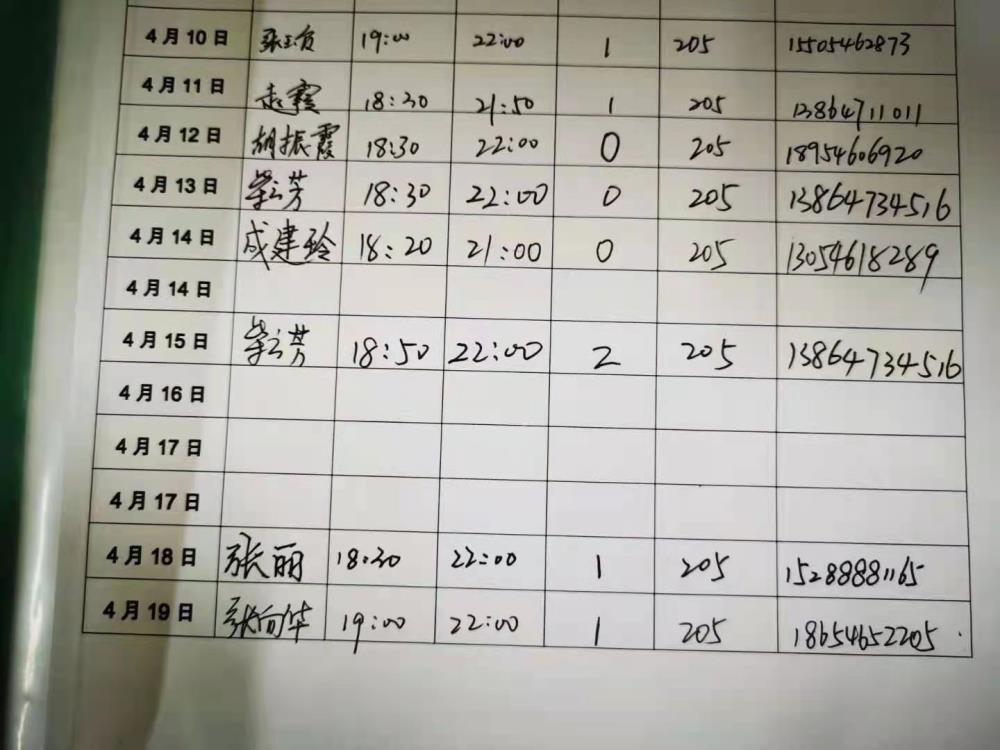 4月10日 19:00 22:00 1 205 15505462873
4月11日 赵霞 18:30 21:50 1 205 13864711011
4月12日 胡振霞 18:30 22:00 0 205 18954606920
4月13日 芳 18:30 22:00 0 205 13864734516
4月14日 成建玲 18:20 21:00 0 205 13054618289
4月14日
4月15日 芳 18:50 22:00 2 205 13864734516
4月16日
4月17日
4月17日
4月18日 张丽 18:30 22:00 1 205 15288881165
4月19日 张向华 19:00 22:00 1 205 18654652205